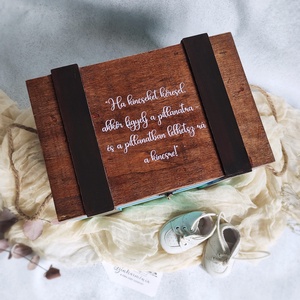 "Ha kincseket keresel
akkor figyelj a pillanatra
és a pillanatban lelhetsz rá
a kincsre!"